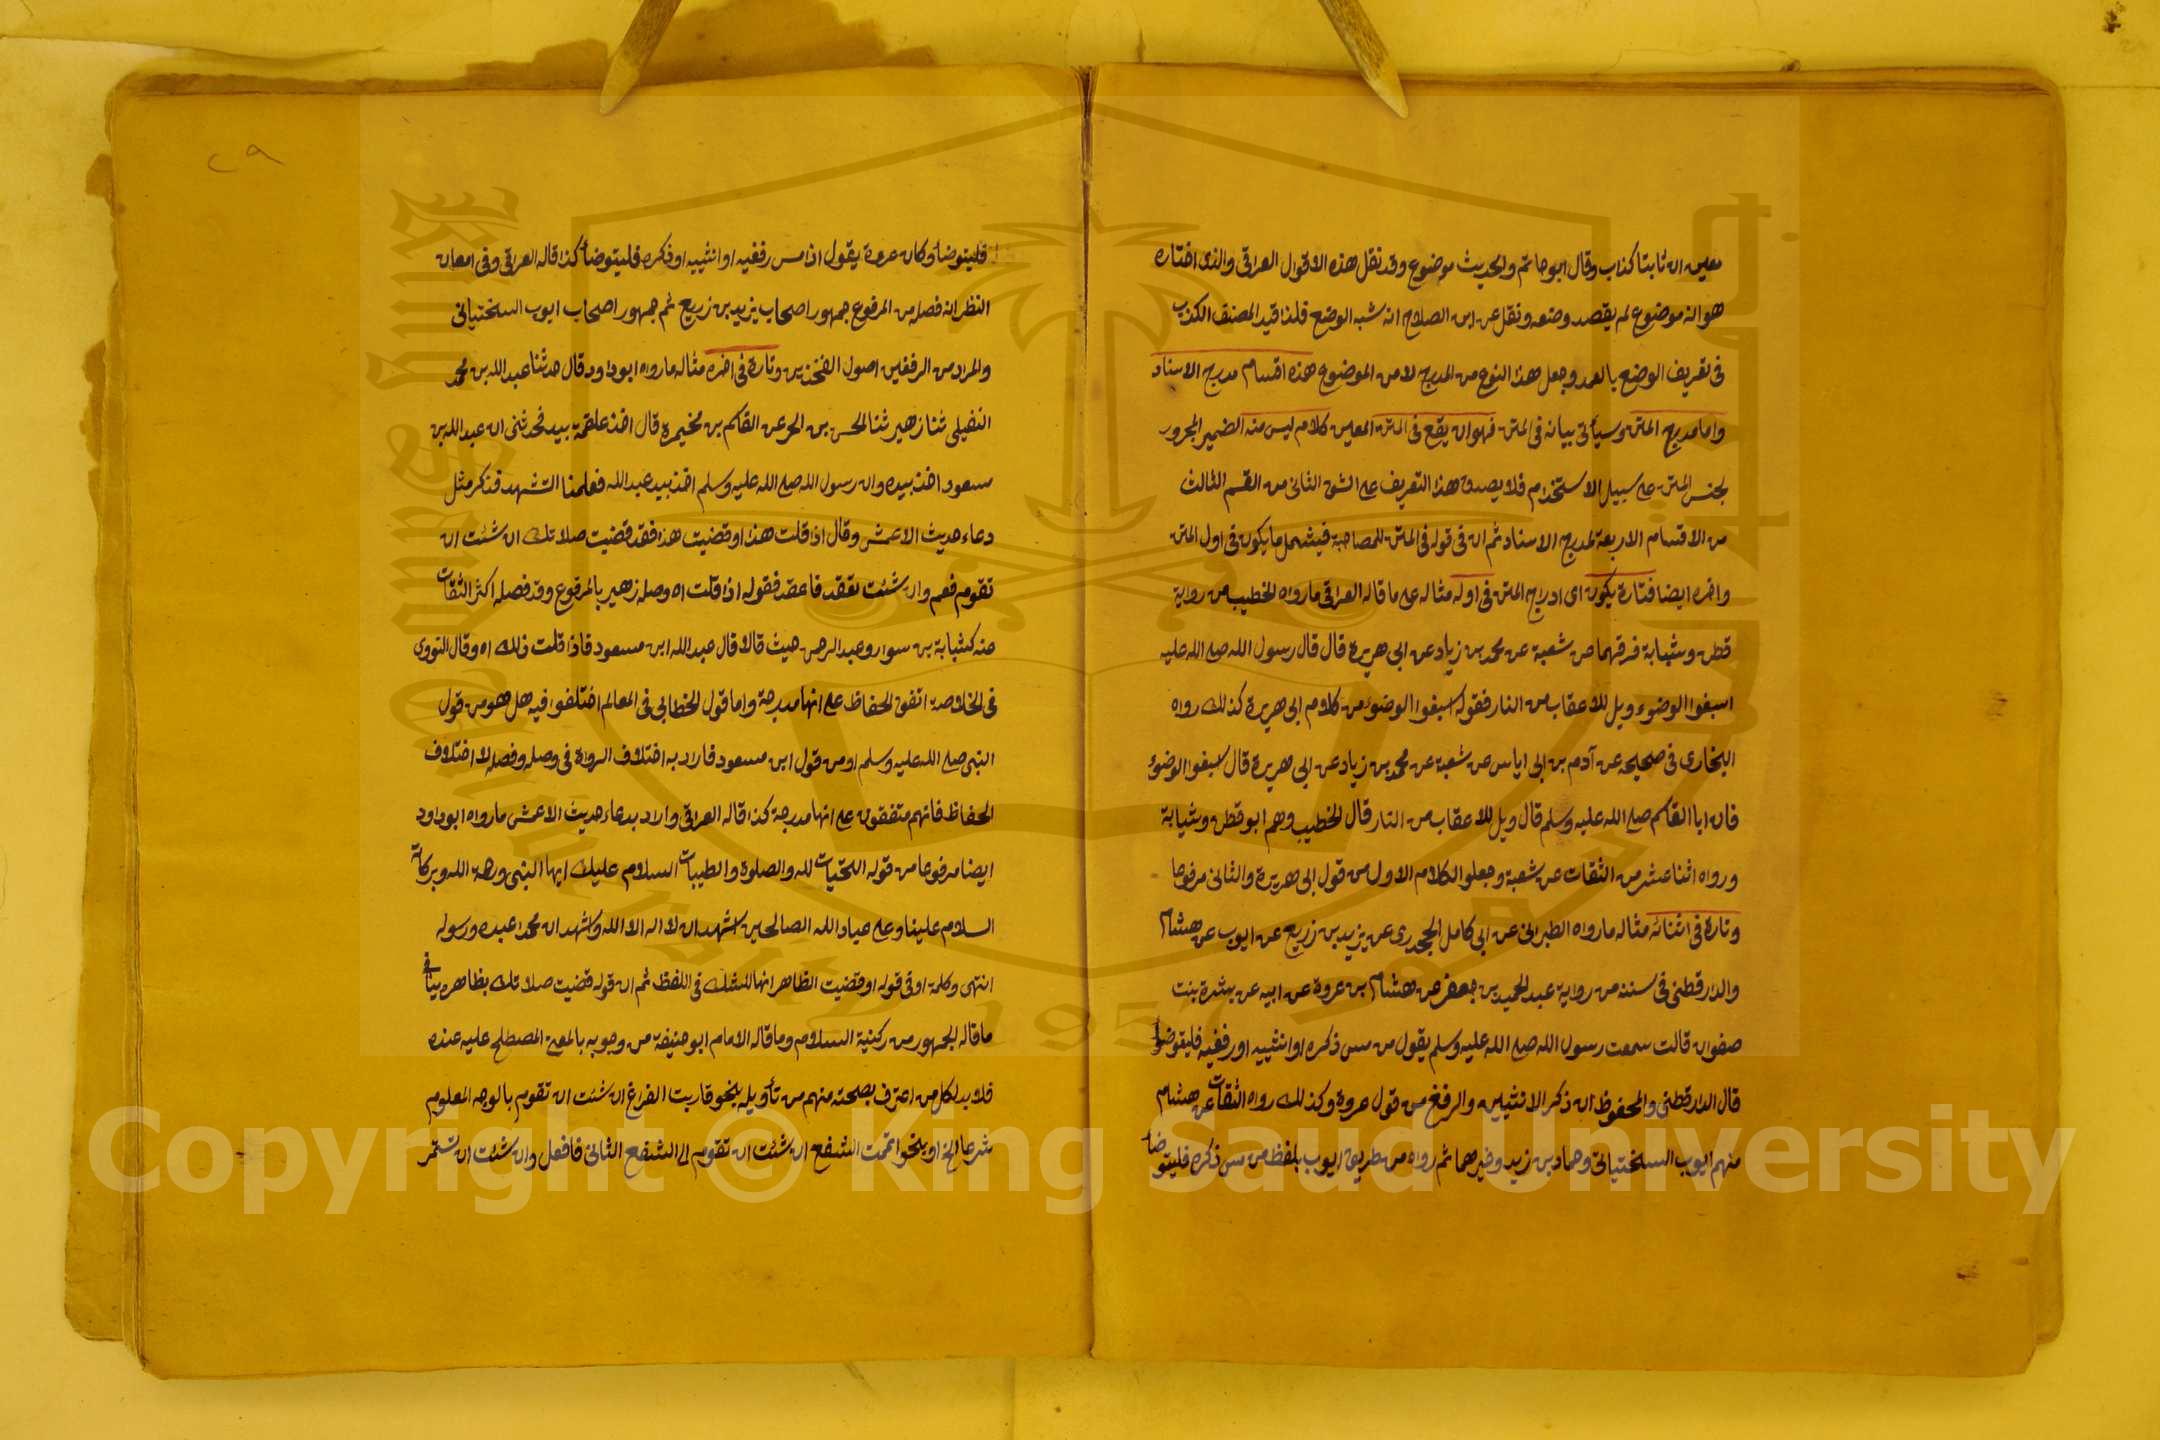 معين ان ثابتا كذاب وقال ابو حاتم والحديث موضوع وقد نقل هذه الاقوال العراقي والذي اختاره
هو انه موضوع لم يقصد وضعه ونقل عن ابن الصلاح انه شبه الوضع فلذا قيد المصنف الكذب
في تعريف الوضع بالعمد وجعل هذا النوع من المدرج لا من الموضوع هذه اقسام مدرج الاسناد
واما مدرج المتن وسيأتي بيانه في المتن فهو ان يقع في المتن المعين كلام ليس منه الضمير المجرور
لجنس المتن على سبيل الاستخدام فلا يصدق هذا التعريف على الشق الثاني من القسم الثالث
من الاقسام الاربعة لمدرج الاسناد ثم ان في قوله في المتن للمصاحبة فيشمل ما يكون في اول المتن
واخره ايضا فتارة يكون اي ادراج المتن في اوله مثاله على ما قاله العراقي ما رواه الخطيب من رواية
قطن وشبابة فرقهما عن شعبة عن محمد بن زياد عن ابي هريرة قال قال رسول الله صلى الله عليه
اسبغوا الوضوء ويل للاعقاب من النار فقوله اسبغوا الوضوء من كلام ابي هريرة كذلك رواه
البخاري في صحيحه عن آدم بن ابي اياس عن شعبة عن محمد بن زياد عن ابي هريرة قال اسبغوا الوضوء
فان ابا القاسم صلى الله عليه وسلم قال ويل للاعقاب من النار قال الخطيب وهم ابو قطن وشبابة
ورواه اثنا عشر من الثقات عن شعبة وجعلوا الكلام الاول من قول ابي هريرة والثاني مرفوعا
وتارة في اثنائه مثاله ما رواه الطبراني عن ابي كامل الجحدري عن يزيد بن زريع عن ايوب عن هشام
والدارقطني في سننه من رواية عبد الحميد بن جعفر عن هشام بن عروة عن ابيه عن بسرة بنت
صفوان قالت سمعت رسول الله صلى الله عليه وسلم يقول من مس ذكره او انثييه او رفغيه فليتوضأ
قال الدارقطني والمحفوظ ان ذكر الانثيين والرفغ من قول عروة وكذلك رواه الثقات عن هشام
منهم ايوب السختياني وحماد بن زيد وغيرهما ثم رواه من طريق ايوب بلفظ من مس ذكره فليتوضأ
٢٩
فليتوضأ وكان عروة يقول اذا مس رفغيه او انثييه او ذكره فليتوضأ كذا قاله العراقي وفي امعان
النظر انه فصله من المرفوع جمهور اصحاب يزيد بن زريع ثم جمهور اصحاب ايوب السختياني
والمراد من الرفغين اصول الفخذين وتارة في اخره مثاله ما رواه ابو داود قال حدثنا عبد الله بن محمد
النفيلي ثنا زهير ثنا الحسن بن الحر عن القاسم بن مخيمرة قال اخذ علقمة بيد فحدثني ان عبد الله بن
مسعود اخذ بيده وان رسول الله صلى الله عليه وسلم اخذ بيد عبد الله فعلمنا التشهد فذكر مثل
دعاء حديث الاعمش وقال اذا قلت هذا او قضيت هذا فقد قضيت صلاتك ان شئت ان
تقوم فقم وان شئت تقعد فاقعد فقوله اذا قلت اه وصله زهير بالمرفوع وقد فصله اكثر الثقات
عنه كشبابة بن سوار وعبد الرحمن حيث قالا قال عبد الله ابن مسعود فاذا قلت ذلك اه وقال النووي
في الخلاصة اتفق الحفاظ على انها مدرجة واما قول الخطابي في المعالم اختلفوا فيه هل هو من قول
النبي صلى الله عليه وسلم او من قول ابن مسعود فاراد به اختلاف الرواة في وصله وفصله لا اختلاف
الحفاظ فانهم متفقون على انها مدرجة كذا قاله العراقي واراد بدعاء حديث الاعمش ما رواه ابو داود
ايضا مرفوعا من قوله التحيات لله والصلوة والطيبات السلام عليك ايها النبي ورحمة الله وبركاته
السلام علينا وعلى عباد الله الصالحين اشهد ان لا اله الا الله واشهد ان محمدا عبده ورسوله
انتهى وكلمة او في قوله او قضيت الظاهر انها للشك في اللفظ ثم ان قوله قضيت صلاتك بظاهره ينافي
ما قاله الجمهور من ركنية السلام وما قاله الامام ابو حنيفة من وجوبه بالمعنى المصطلح عليه عنده
فلا بد لكل من اعترف بصحته منهم من تأويله بنحو قاربت الفراغ ان شئت ان تقوم بالوجه المعلوم
شرعا الخ او بنحو اتممت الشفع ان شئت ان تقوم الى الشفع الثاني فافعل وان شئت ان تستمر
Copyright © King Saud University
King Saud University
1957